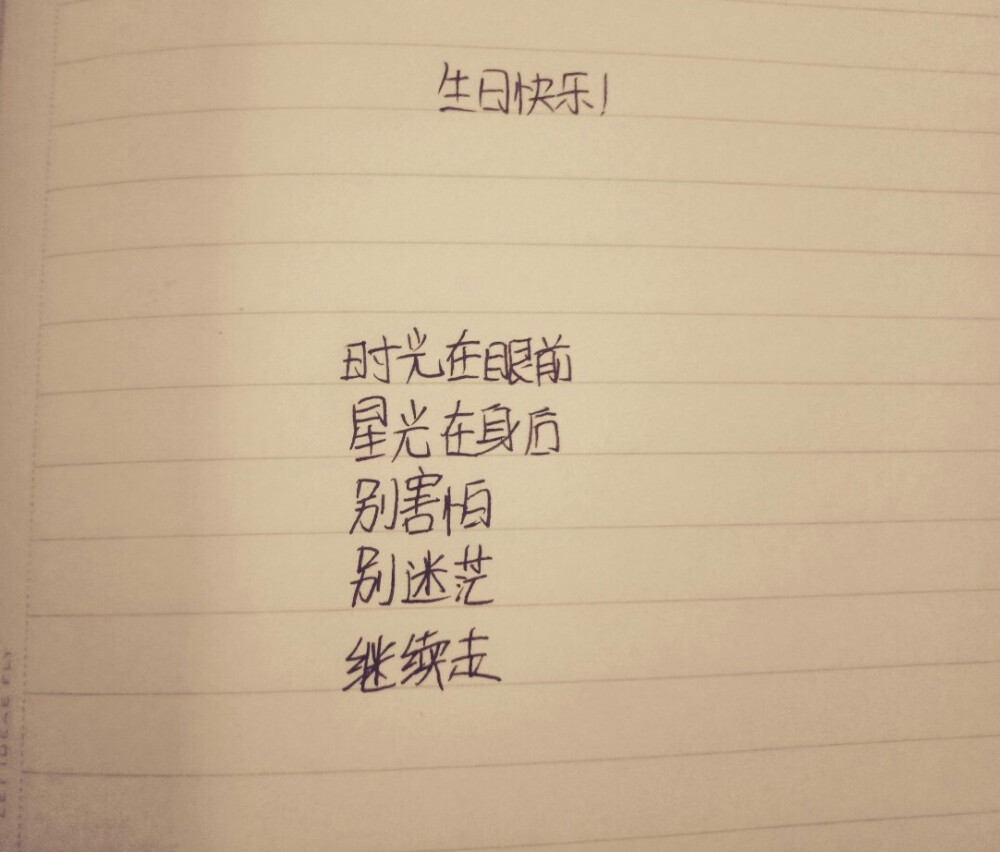 生日快乐!
时光在眼前
星光在身后
别害怕
别迷茫
继续走